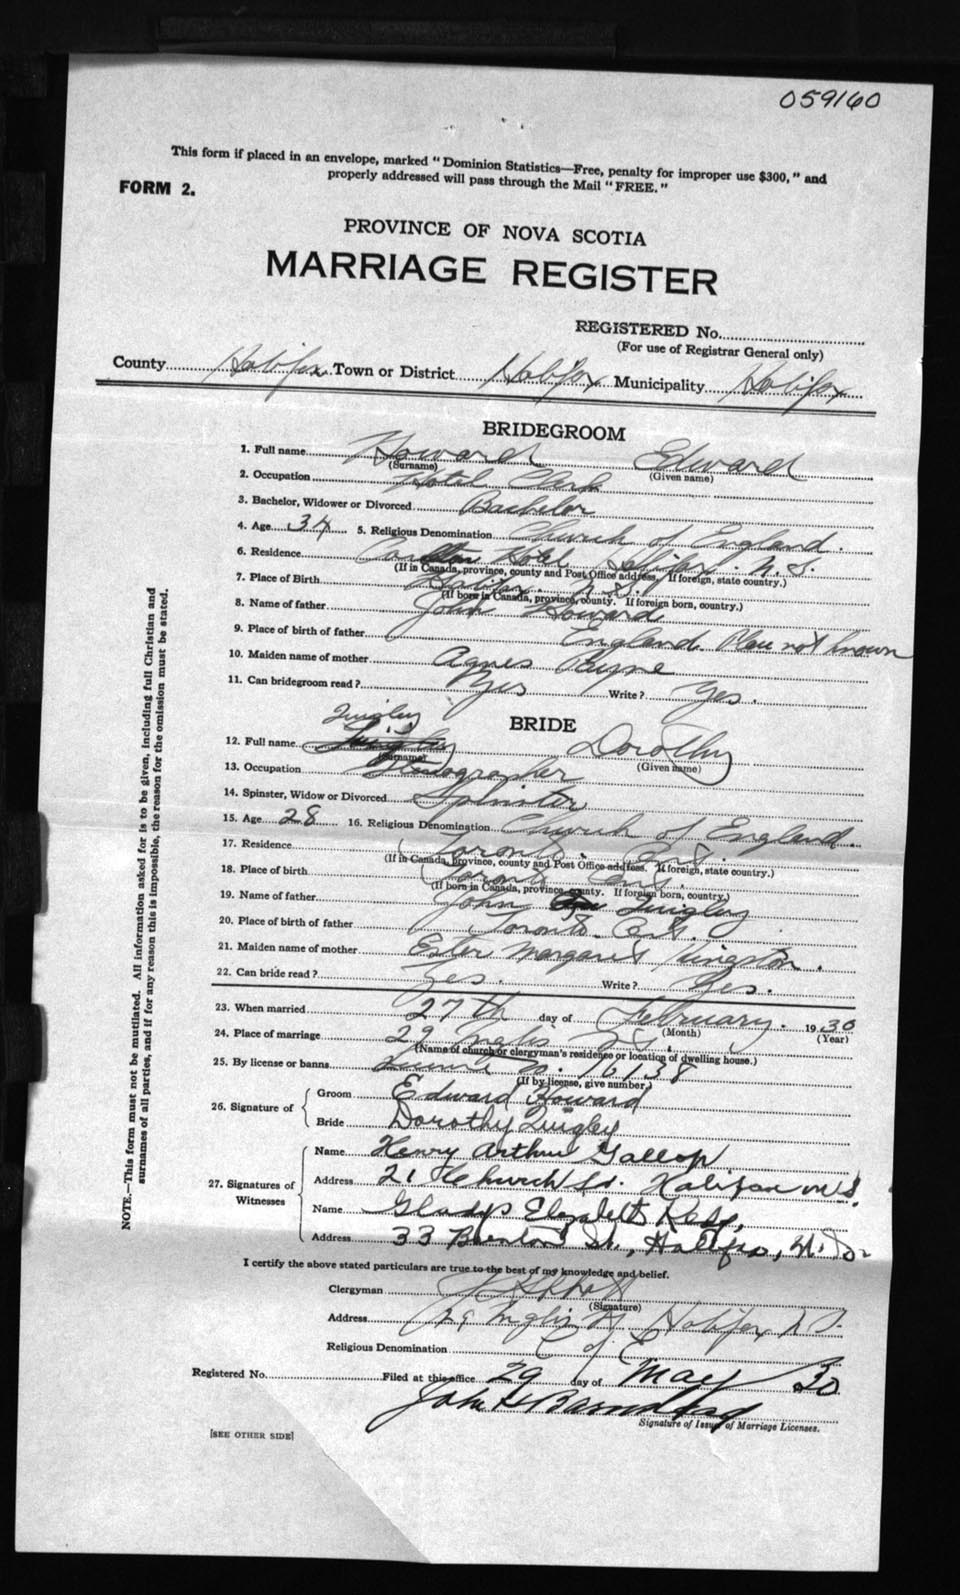 059160
This form if placed in an envelope, marked "Dominion Statistics—Free, penalty for improper use $300," and
properly addressed will pass through the Mail "FREE."
FORM 2.
PROVINCE OF NOVA SCOTIA
MARRIAGE REGISTER
REGISTERED No.
(For use of Registrar General only)
County Halifax Town or District Halifax Municipality Halifax
BRIDEGROOM
1. Full name Howard Edward
(Surname) (Given name)
2. Occupation Hotel Clerk
3. Bachelor, Widower or Divorced Bachelor
4. Age 34 5. Religious Denomination Church of England.
6. Residence Carlton Hotel Halifax. N.S.
(If in Canada, province, county and Post Office address. If foreign, state country.)
7. Place of Birth Halifax. N.S.
(If born in Canada, province, county. If foreign born, country.)
8. Name of father John Howard
9. Place of birth of father England. Place not known
10. Maiden name of mother Agnes
11. Can bridegroom read? Yes Write? Yes.
BRIDE
Quigley
12. Full name Dorothy
(Surname) (Given name)
13. Occupation Stenographer
14. Spinster, Widow or Divorced Spinster
15. Age 28 16. Religious Denomination Church of England.
17. Residence Toronto. Ont.
(If in Canada, province, county and Post Office address. If foreign, state country.)
18. Place of birth Toronto Ont.
(If born in Canada, province, county. If foreign born, country.)
19. Name of father John Quigley
20. Place of birth of father Toronto. Ont.
21. Maiden name of mother Ester Margaret Kingston.
22. Can bride read? Yes. Write? Yes.
23. When married 27th day of February. 1930
(Month) (Year)
24. Place of marriage 29 Inglis St.
(Name of church or clergyman's residence or location of dwelling house.)
25. By license or banns License No. 16138
(If by license, give number)
26. Signature of Groom Edward Howard
Bride Dorothy Quigley
27. Signatures of Witnesses Name Henry Arthur Gallop
Address 21 Church St. Halifax N.S.
Name Gladys Elizabeth
Address 33 Brenton St., Halifax, N.S.
I certify the above stated particulars are true to the best of my knowledge and belief.
Clergyman
(Signature)
Address 29 Inglis St Halifax N.S.
Religious Denomination C of E
Registered No. Filed at this office 29 day of May 30
John H Barnstead
Signature of Issuer of Marriage Licenses.
[SEE OTHER SIDE]
NOTE.—This form must not be mutilated. All information asked for is to be given, including full Christian and
surnames of all parties, and if for any reason this is impossible, the reason for the omission must be stated.